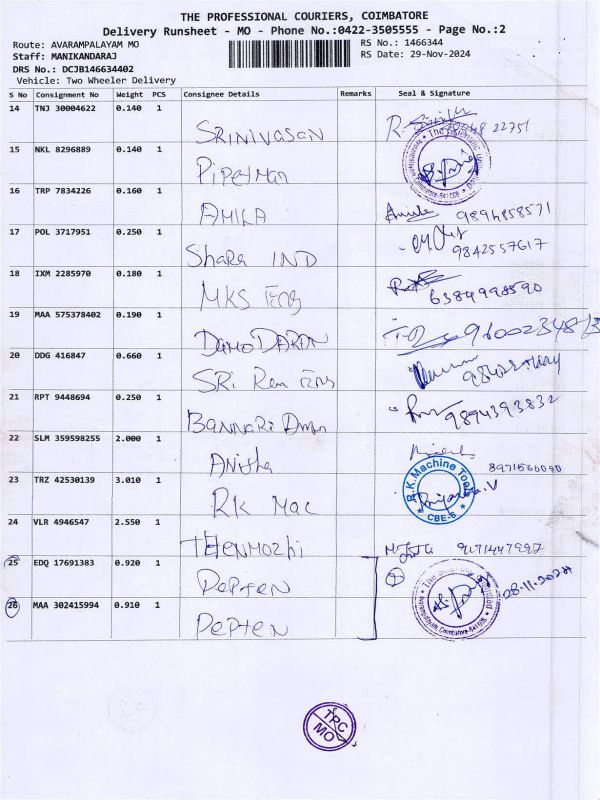 THE PROFESSIONAL COURIERS, COIMBATORE
Delivery Runsheet - MO - Phone No.:0422-3505555 - Page No.:2
Route: AVARAMPALAYAM MO
RS No.: 1466344
Staff: MANIKANDARAJ
RS Date: 29-Nov-2024
DRS No.: DCJB146634402
Vehicle: Two Wheeler Delivery
S No Consignment No Weight PCS Consignee Details Remarks Seal & Signature
14 TNJ 30004622 0.140 1
SRINIVASAN
22751
15 NKL 8296889 0.140 1
16 TRP 7834226 0.160 1
AMILA
9894858571
17 POL 3717951 0.250 1
Shara IND
9842557617
18 IXM 2285970 0.180 1
MKS Eng
6384998590
19 MAA 575378402 0.190 1
DamoDARAN
20 DDG 416847 0.660 1
SRi Ram Eng
21 RPT 9448694 0.250 1
BANNARi Amman
9894393832
22 SLM 359598255 2.000 1
Anitha
8971566090
23 TRZ 42530139 3.010 1
RK Mac
R.K.Machine Tools
CBE-6
24 VLR 4946547 2.550 1
THENMOZHi
25 EDQ 17691383 0.920 1
PEPTEN
28.11.2024
26 MAA 302415994 0.910 1
PEPTEN
TRC
MO